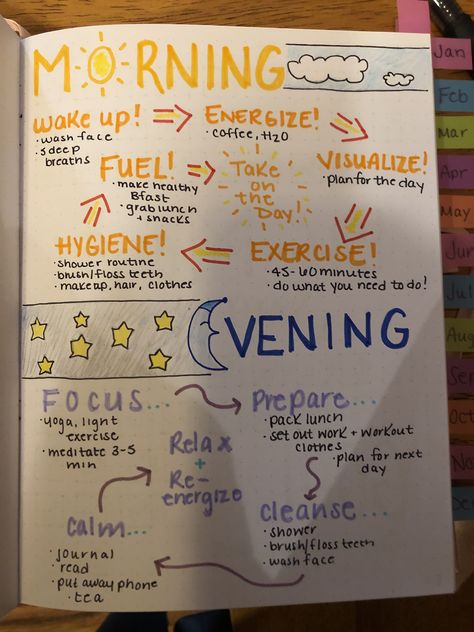 MORNING
WAKE UP!
• wash face
• 5 deep
breaths
ENERGIZE!
• coffee, H2O
VISUALIZE!
• plan for the day
EXERCISE!
• 45-60 minutes
• do what you need to do!
HYGIENE!
• shower routine
• brush/floss teeth
• makeup, hair, clothes
FUEL!
• make healthy
Bfast
• grab lunch
+ snacks
Take
on
the
Day!
EVENING
FOCUS...
• yoga, light
exercise
• meditate 3-5
min
Prepare...
• pack lunch
• set out work + workout
clothes
• plan for next
day
Cleanse...
• shower
• brush/floss teeth
• wash face
Calm...
• journal
• read
• put away phone
• tea
Relax
+
Re-
energize
Jan
Feb
Mar
Apr
May
Jun
Jul
Aug
Sep
Oct